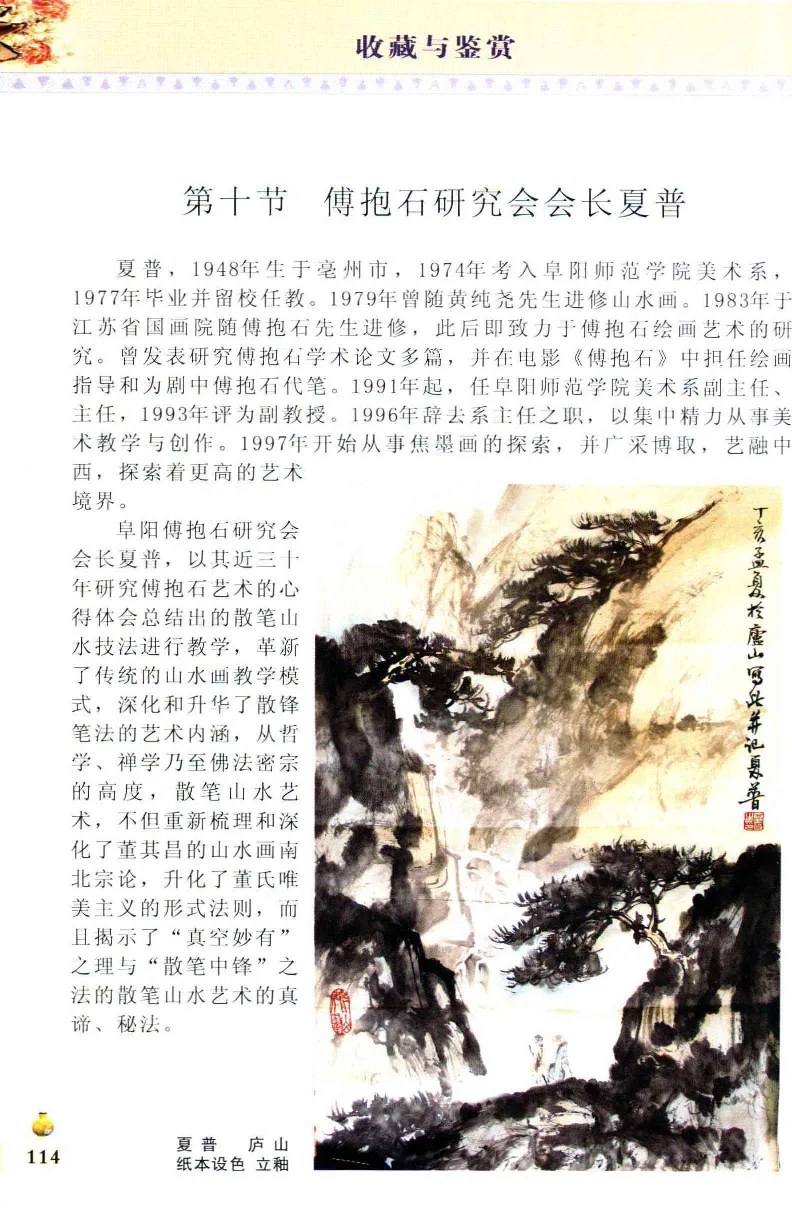 收藏与鉴赏
第十节 傅抱石研究会会长夏普
夏普，1948年生于亳州市，1974年考入阜阳师范学院美术系，
1977年毕业并留校任教。1979年曾随黄纯尧先生进修山水画。1983年于
江苏省国画院随傅抱石先生进修，此后即致力于傅抱石绘画艺术的研
究。曾发表研究傅抱石学术论文多篇，并在电影《傅抱石》中担任绘画
指导和为剧中傅抱石代笔。1991年起，任阜阳师范学院美术系副主任、
主任，1993年评为副教授。1996年辞去系主任之职，以集中精力从事美
术教学与创作。1997年开始从事焦墨画的探索，并广采博取，艺融中
西，探索着更高的艺术
境界。
阜阳傅抱石研究会
会长夏普，以其近三十
年研究傅抱石艺术的心
得体会总结出的散笔山
水技法进行教学，革新
了传统的山水画教学模
式，深化和升华了散锋
笔法的艺术内涵，从哲
学、禅学乃至佛法密宗
的高度，散笔山水艺
术，不但重新梳理和深
化了董其昌的山水画南
北宗论，升化了董氏唯
美主义的形式法则，而
且揭示了“真空妙有”
之理与“散笔中锋”之
法的散笔山水艺术的真
谛、秘法。
丁亥孟夏於廬山写此并记夏普
夏普 庐山
纸本设色 立釉
114